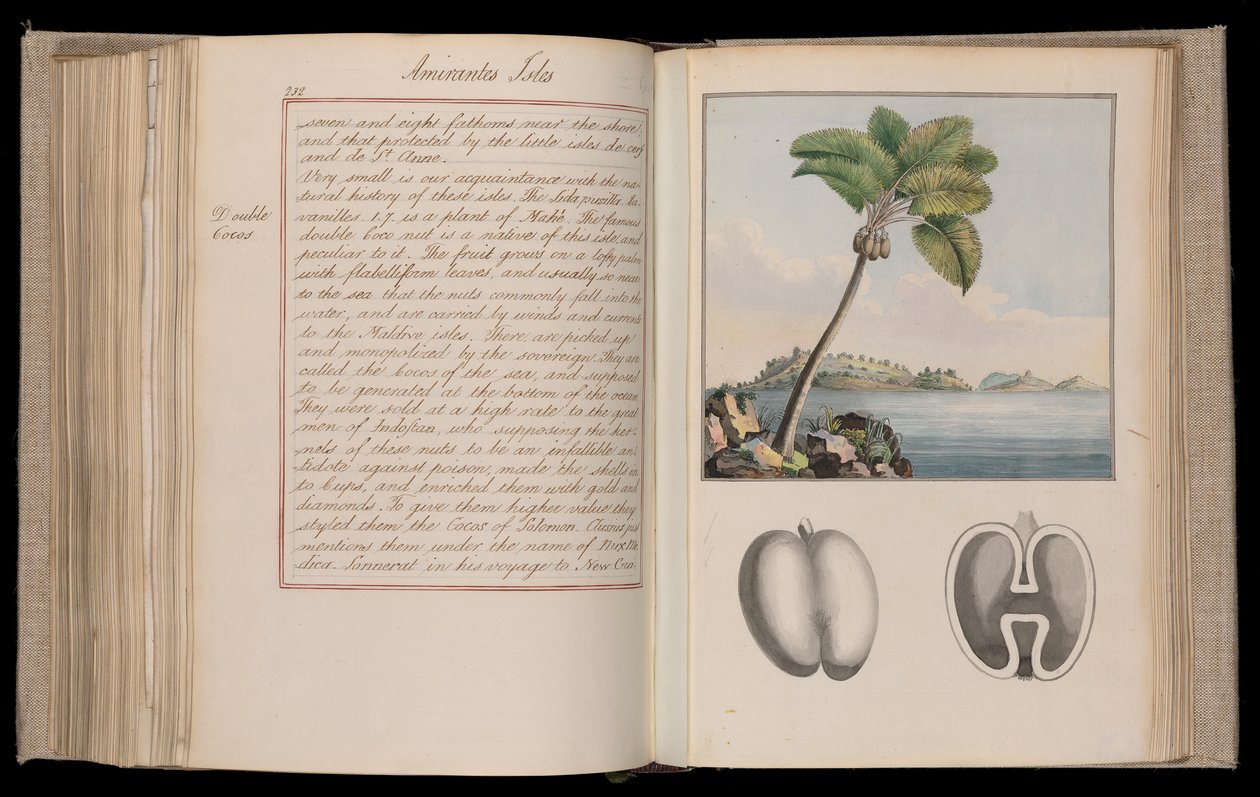 Amirantes Isles
232
seven and eight fathoms near the shore,
and that protected by the little isles de cerf
and de St. Anne.
Very small is our acquaintance with the na-
tural history of these isles. The Sida pusilla. Ca
vanilles. 1.7. is a plant of Mahé. The famous
Double
Cocos
double Coco nut is a native of this isle, and
peculiar to it. The fruit grows on a lofty palm
with flabelliform leaves, and usually so near
to the sea that the nuts commonly fall into the
water, and are carried by winds and currents
to the Maldive isles. There are picked up
and monopolized by the sovereign. They are
called the Cocos of the sea, and supposed
to be generated at the bottom of the ocean.
They were sold at a high rate to the great
men of Indostan, who supposing the ker-
nels of these nuts to be an infallible an-
tidote against poison, made the shells in
to Cups, and enriched them with gold and
diamonds. To give them higher value they
styled them the Cocos of Solomon. Clusius
mentions them under the name of Nux Me
dica. Sonnerat in his voyage to New Gui-